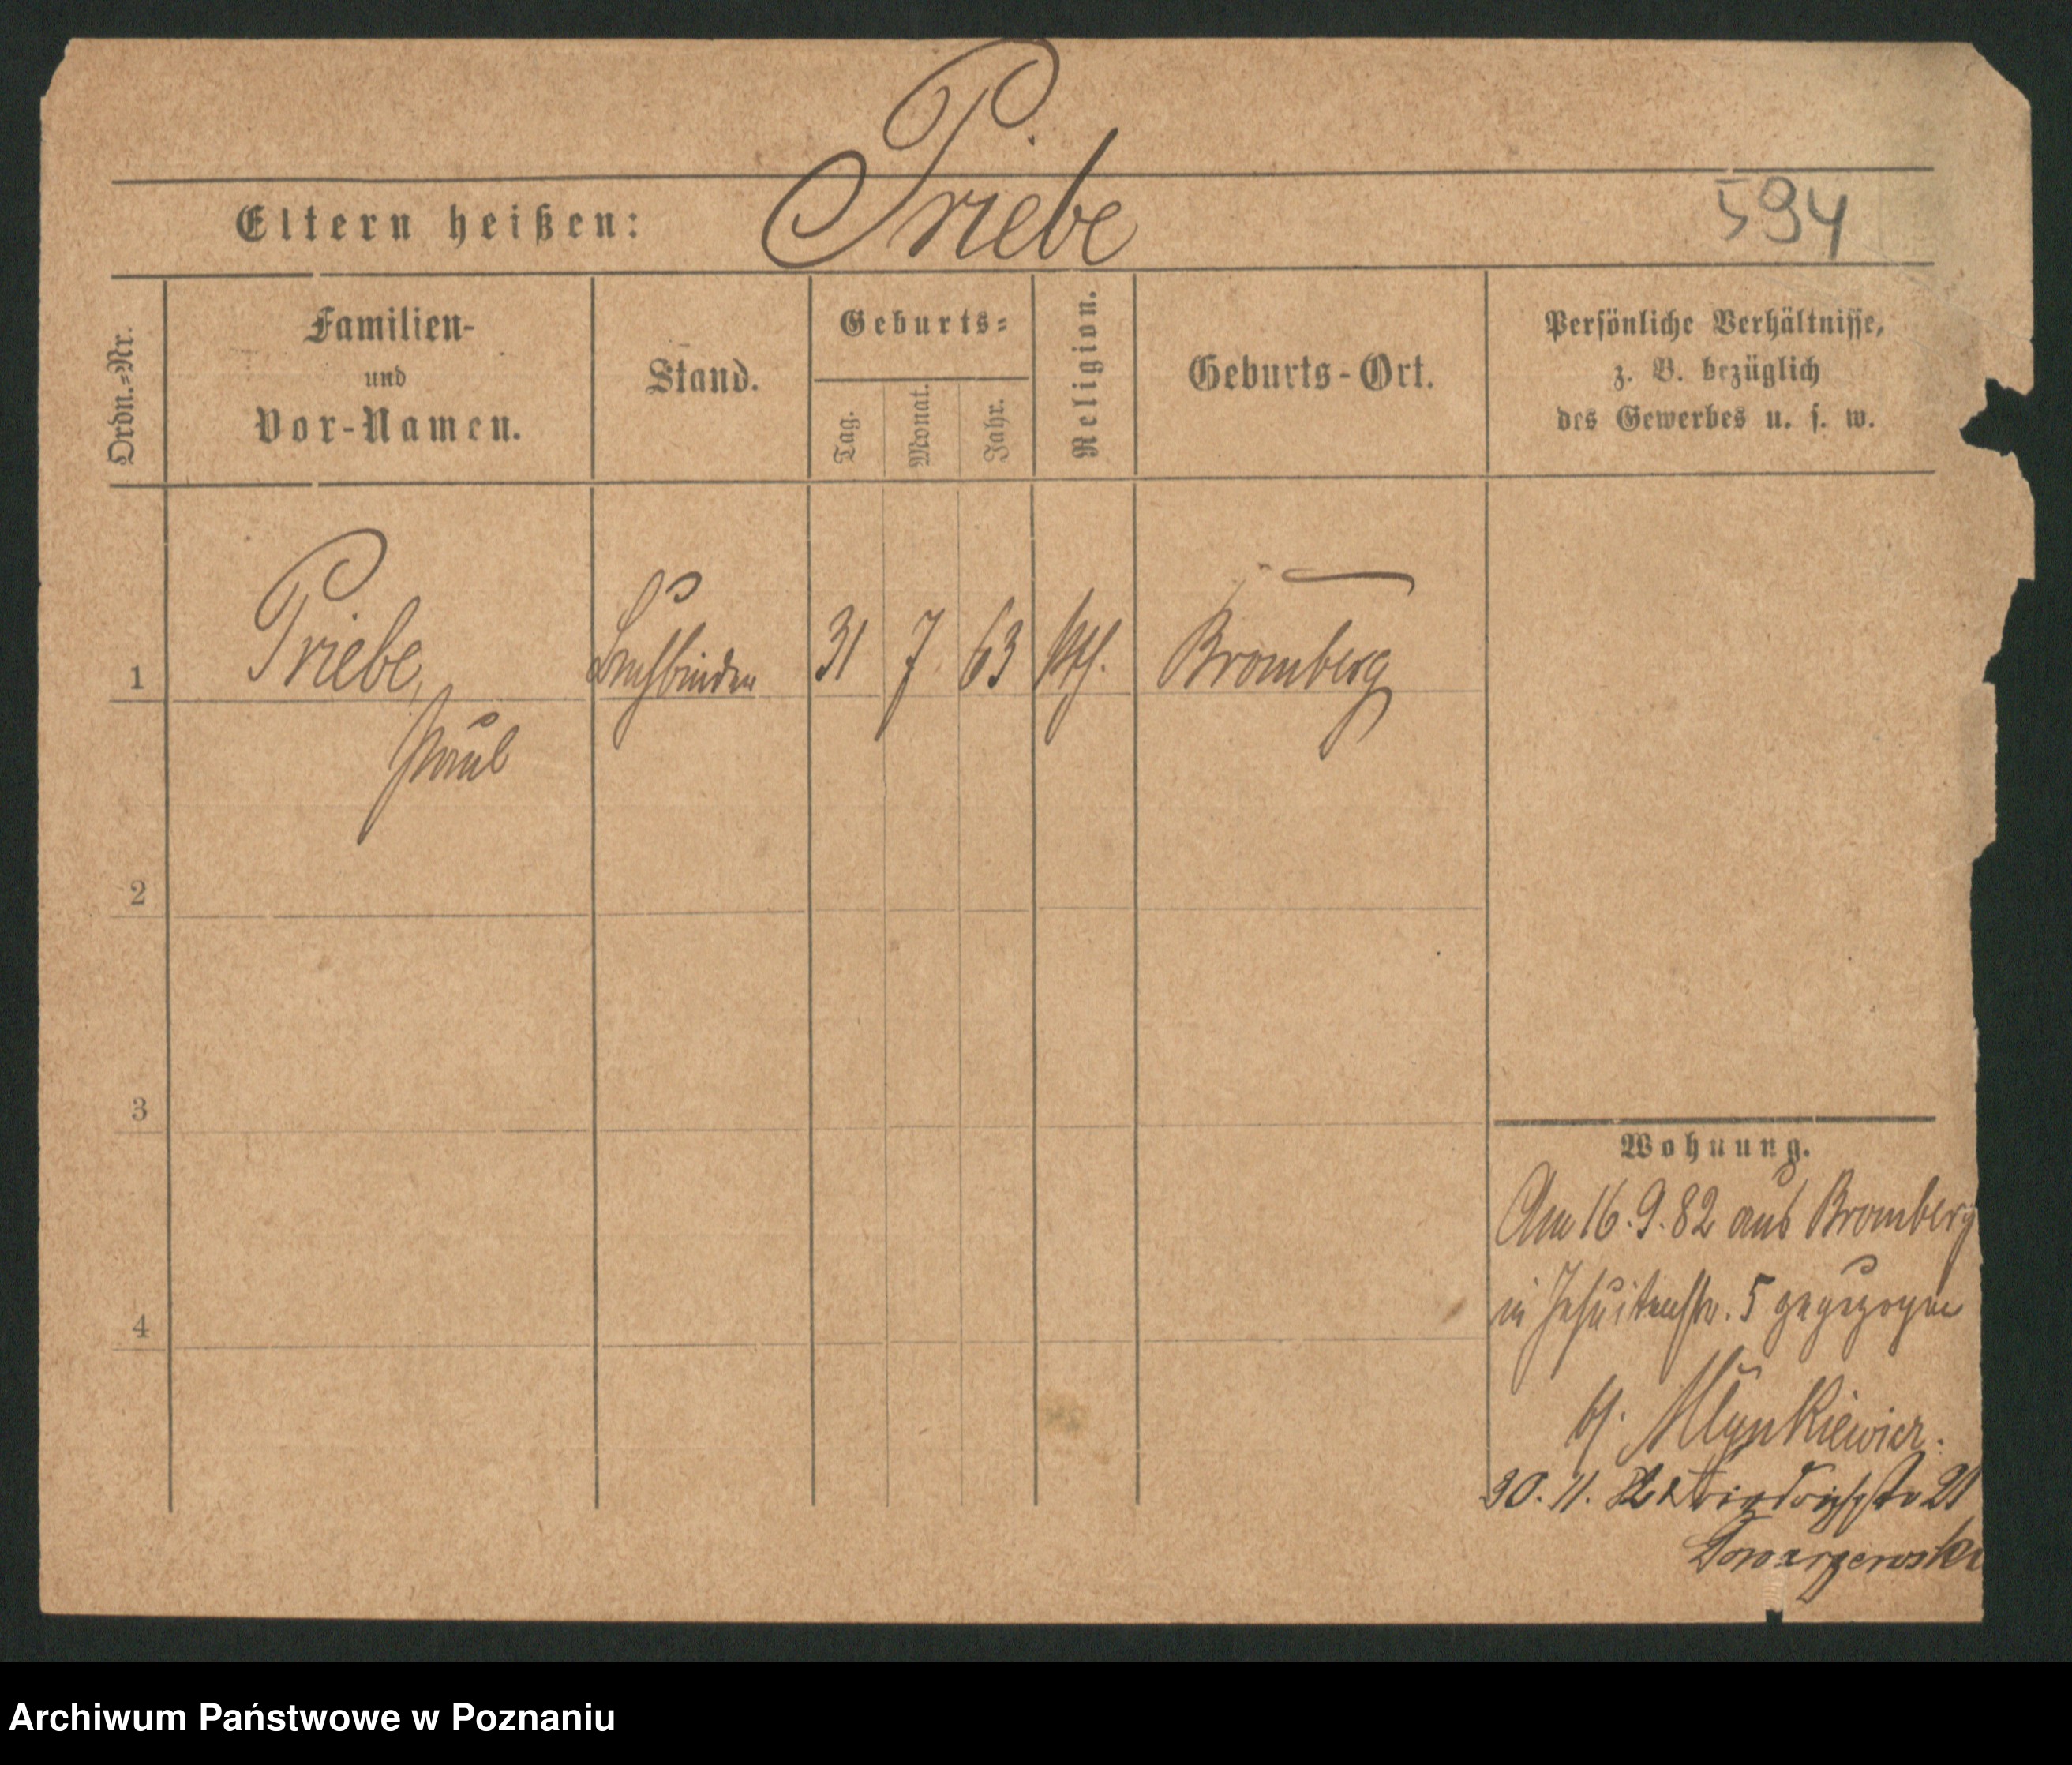 Priebe
Eltern heißen:
594
Ordn.-Nr.
Familien-
und
Vor-Namen.
Stand.
Geburts-
Tag.
Monat.
Jahr.
Religion.
Geburts-Ort.
Persönliche Verhältnisse,
z. B. bezüglich
des Gewerbes u. s. w.
1
Priebe,
Paul
Buchbinder
31
7
63
kth.
Bromberg
2
3
4
Wohnung.
Am 16.9.82 aus Bromberg
in Jesuitenstr. 5 gezogen
bj. Mlynkiewicz.
30. 11. 82 Friedrichstr 21
Archiwum Państwowe w Poznaniu